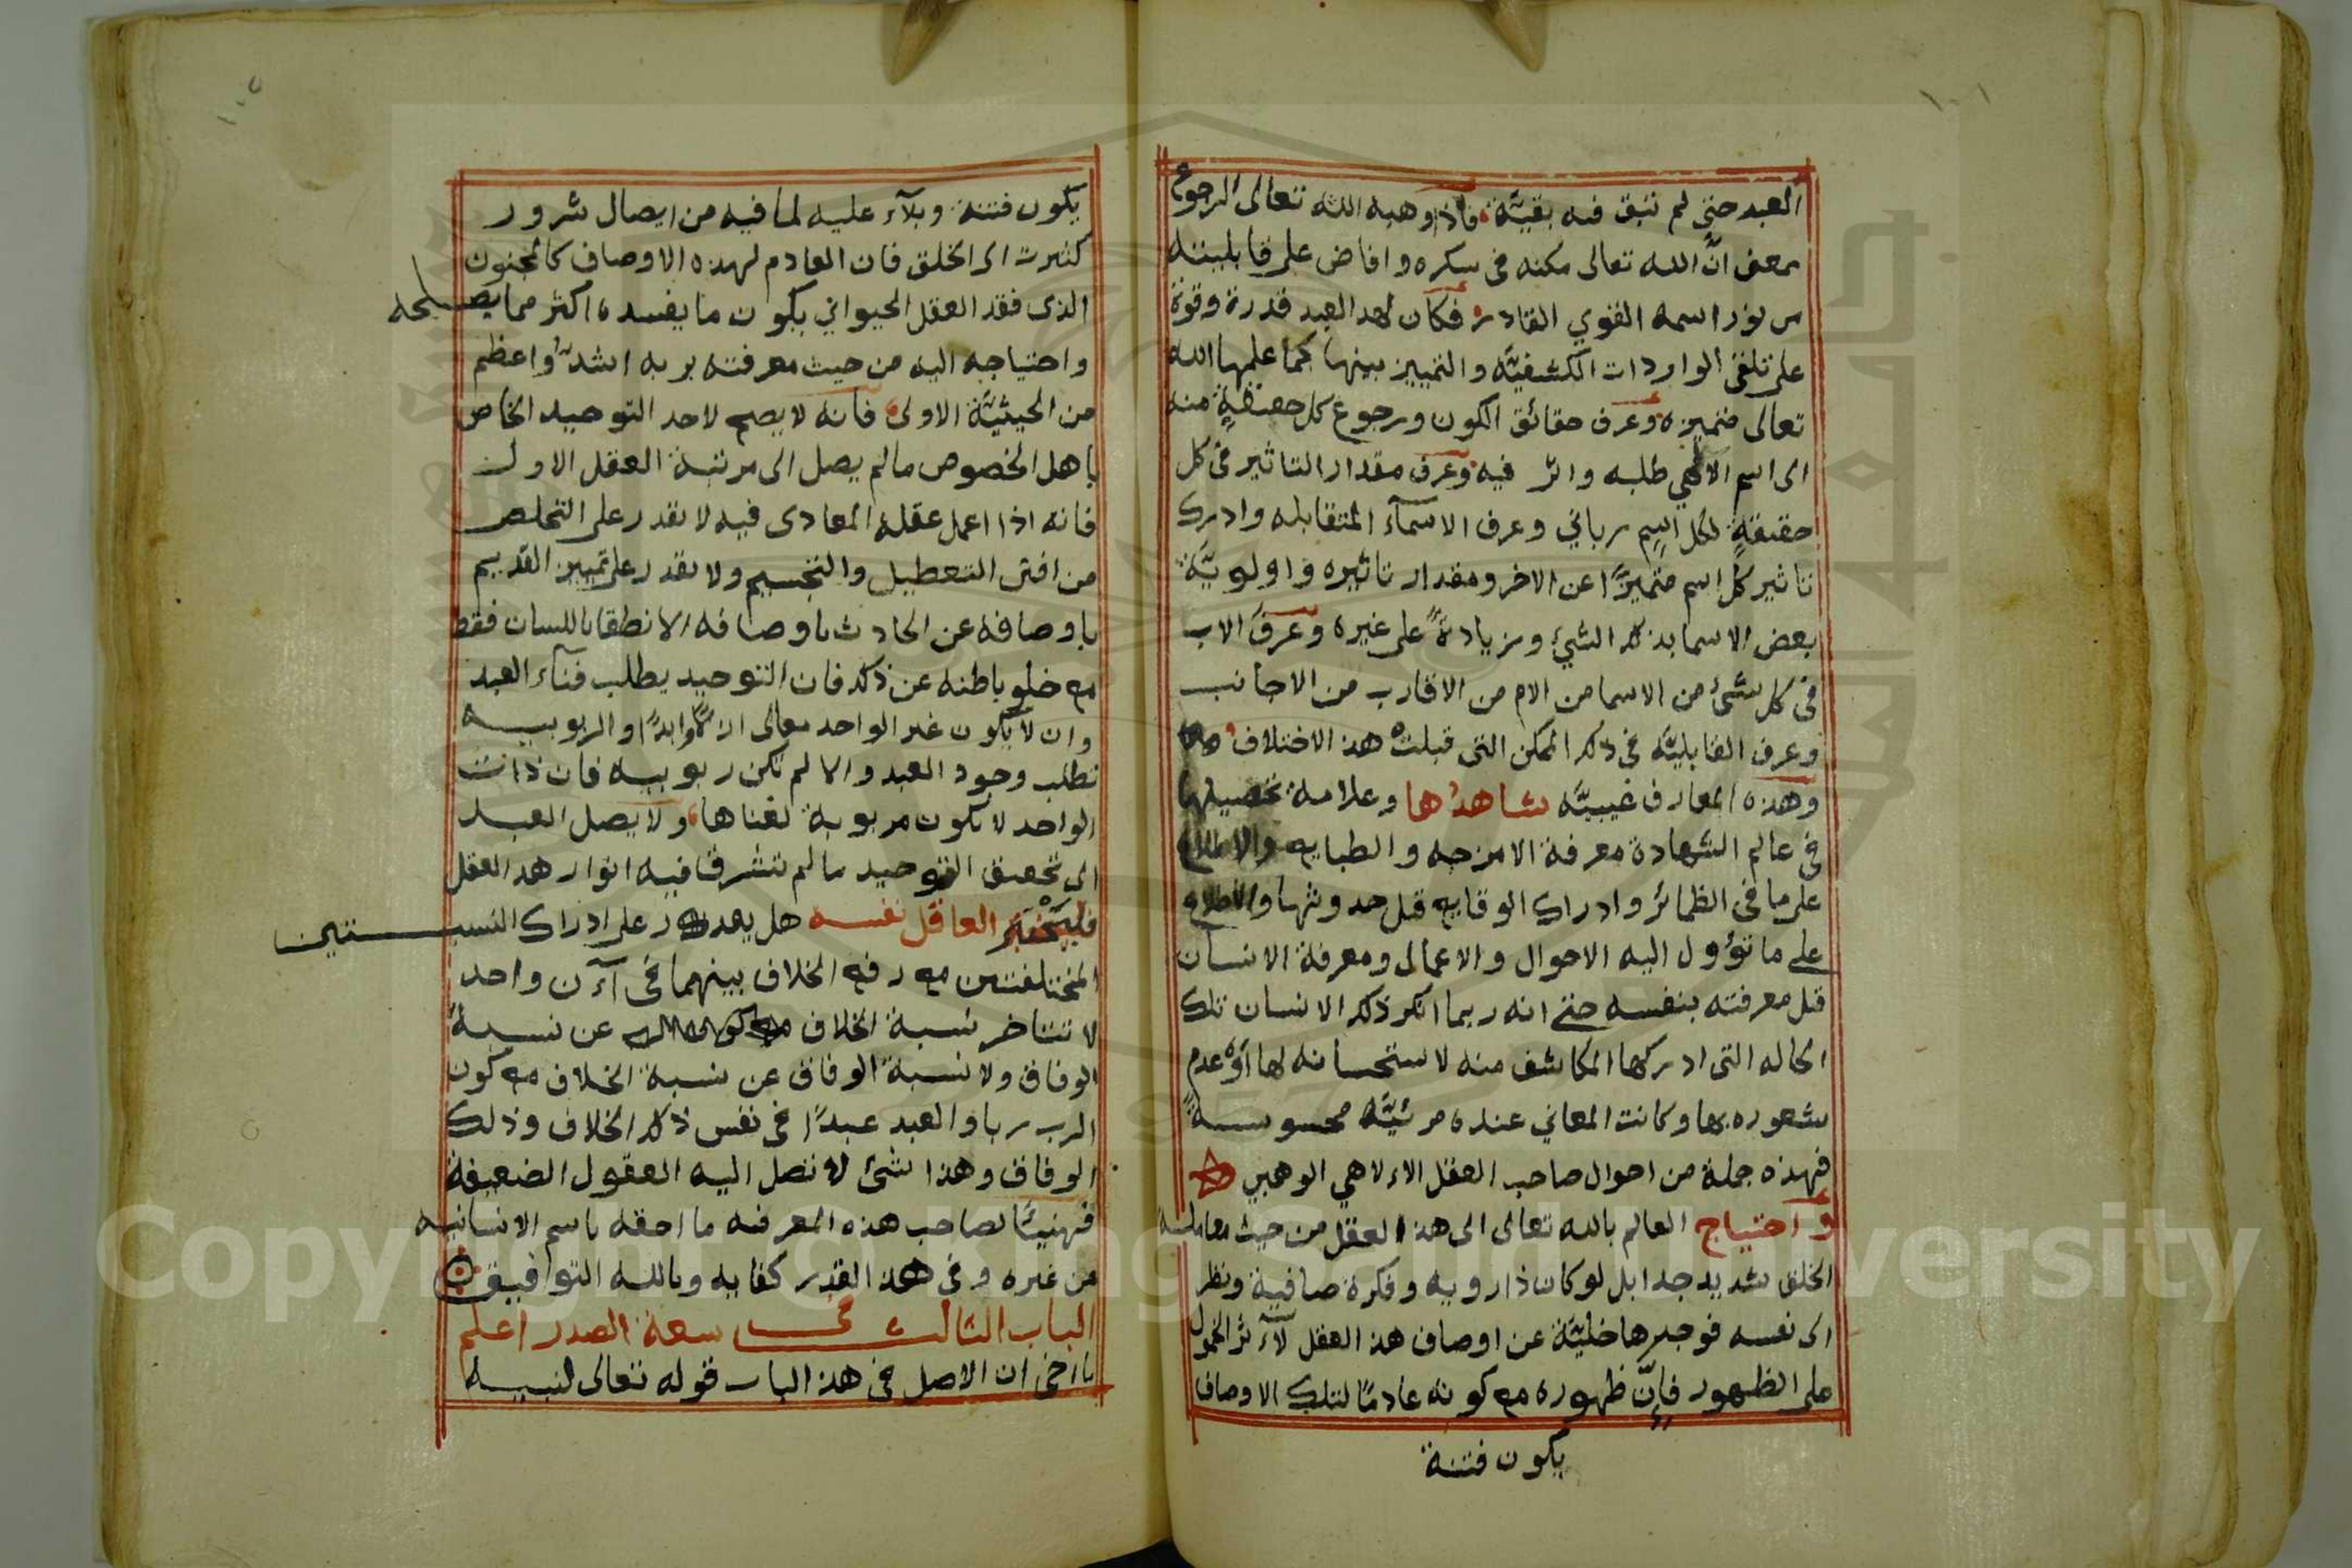 العبد حتى لم تبق فيه بقية فاذا وهبه الله تعالى الرجوع
بمعنى ان الله تعالى مكنه فى سكره وافاض على قابليته
من نور اسمه القوي القادر فكان لهذا العبد قدرة وقوة
على تلقى الواردات الكشفيّه والتمييز بينها كما علمها الله
تعالى متميزه وعرف حقائق الكون ورجوع كل حقيقةٍ منه
الى اسم الالهي طلبه واثر فيه وعرف مقدار التاثير فى كل
حقيقةٍ لكل اسمٍ رباني وعرف الاسمآء المتقابله وادرك
تاثير كل اسم متميزًا عن الاخر ومقدار تاثيره واولويّة
بعض الاسما بذلك الشيئ وزيادةً على غيره وعرف الاب
فى كل شئ من الاسما من الام من الاقارب من الاجانب
وعرف القابليّه فى ذلك الممكن التى قبلت هذ الاختلاف
وهذه المعارف غيبيّه شاهدُها وعلامة تحصيلها
فى عالم الشهادة معرفة الامزجه والطبايع والاطلاع
على ما فى الظمائر وادراك الوقايع قبل حدوثها والاطلاع
على ما تؤول اليه الاحوال والاعمال ومعرفة الانسان
قبل معرفته بنفسه حتى انه ربما انكر ذلك الانسان تلك
الحاله التى ادركها المكاشف منه لاستحسانه لها او عدم
شعوره بها وكانت المعاني عنده مرئيّه محسوسةً
فهذه جملة من احوال صاحب العقل الالاهي الوهبي
واحتياج العالم بالله تعالى الى هذا العقل من حيث معاملة
الخلق شديد جدا بل لو كان ذا رويه وفكرة صافية ونظر
الى نفسه فوجدها خليّة عن اوصاف هذ العقل لآثر الخمول
على الظهور فإنّ ظهوره مع كونه عادمًا لتلك الاوصاف
يكون فتنة
يكون فتنة وبلآء عليه لما فيه من ايصال شرور
كثيرت الى الخلق فان العادم لهذه الاوصاف كالمجنون
الذى فقد العقل الحيواني يكون ما يفسده اكثر مما يصلحه
واحتياجه اليه من حيث معرفته بربه اشدّ واعظم
من الحيثيّة الاولى فانه لا يصح لاحد التوحيد الخاص
باهل الخصوص مالم يصل الى مرتبة العقل الاول
فانه اذا اعمل عقله المعادى فيه لا يقدر على التخلص
من افتى التعطيل والتجسيم ولا يقدر على تمييز القديم
باوصافه عن الحادث باوصافه الا نطقا باللسان فقط
مع خلو باطنه عن ذلك فان التوحيد يطلب فنآء العبد
وان لا يكون غير الواحد تعالى ازلًا وابدًا والربوبيه
تطلب وجود العبد والا لم تكن ربوبيه فان ذات
الواحد لا تكون مربوبة لغناها ولا يصل العبد
الى تحقيق التوحيد مالم تشرق فيه انوار هذ العقل
فليختبر العاقل نفسه هل يقدر على ادراك النسبتين
المختلفتين مع رفع الخلاف بينهما فى آن واحد
لا تتاخر نسبة الخلاف عن نسبة
الوفاق ولا نسبة الوفاق عن نسبة الخلاف مع كون
الرب ربا والعبد عبدًا فى نفس ذلك الخلاف وذلك
الوفاق وهذا شئ لا تصل اليه العقول الضعيفة
فهنيئًا لصاحب هذه المعرفه ما احقه باسم الانسانيه
من غيره وفى هذ القدر كفايه وبالله التوافيق
الباب الثالث فى سعة الصدر اعلم
يا اخى ان الاصل فى هذ الباب قوله تعالى لنبيه